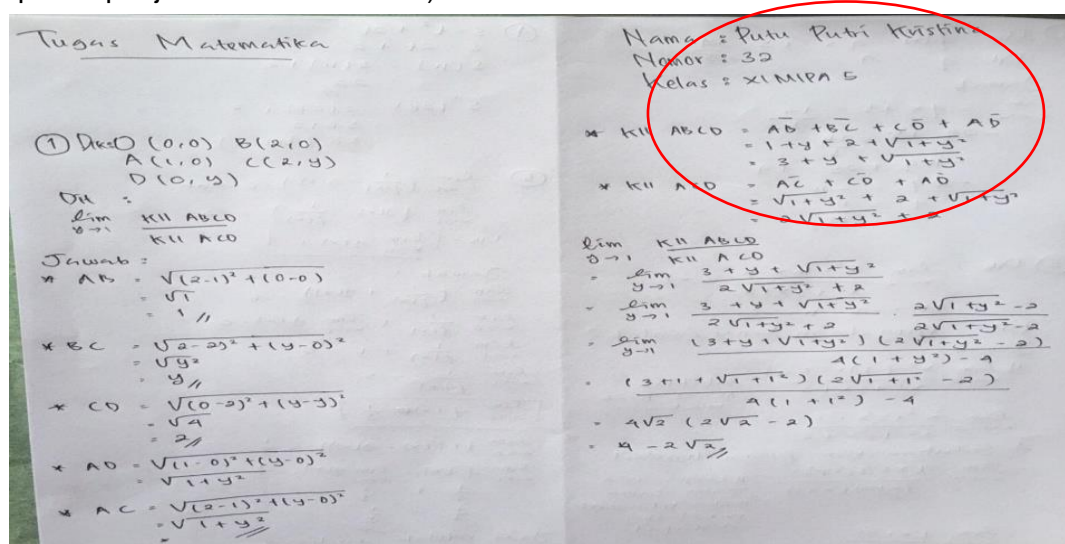 Tugas Matematika
① Dik: O (0,0) B(2,0)
A (1,0) C(2,y)
D(0,y)
Dit :
lim y→1 Kll ABCD / Kll ACD
Jawab :
* AB = √(2-1)² + (0-0)
= √1
= 1 //
* BC = √(2-2)² + (y-0)²
= √y²
= y //
* CD = √(0-2)² + (y-y)²
= √4
= 2 //
* AD = √(1-0)² + (y-0)²
= √1+y²
* AC = √(2-1)² + (y-0)²
= √1+y² //
Nama : Putu Putri Kristina
Nomor : 32
Kelas : XI MIPA 5
* Kll ABCD = AB + BC + CD + AD
= 1+y + 2 + √1+y²
= 3 + y + √1+y²
* Kll ACD = AC + CD + AD
= √1+y² + 2 + √1+y²
= 2√1+y² + 2
lim y→1 Kll ABCD / Kll ACD
= lim y→1 3 + y + √1+y² / 2√1+y² + 2
= lim y→1 3 + y + √1+y² / 2√1+y² + 2 . 2√1+y² - 2 / 2√1+y² - 2
= lim y→1 (3+y+√1+y²) (2√1+y² - 2) / 4(1+y²) - 4
= (3+1+√1+1²) (2√1+1² - 2) / 4(1+1²) - 4
= 4√2 (2√2 - 2)
= 4 - 2√2 //